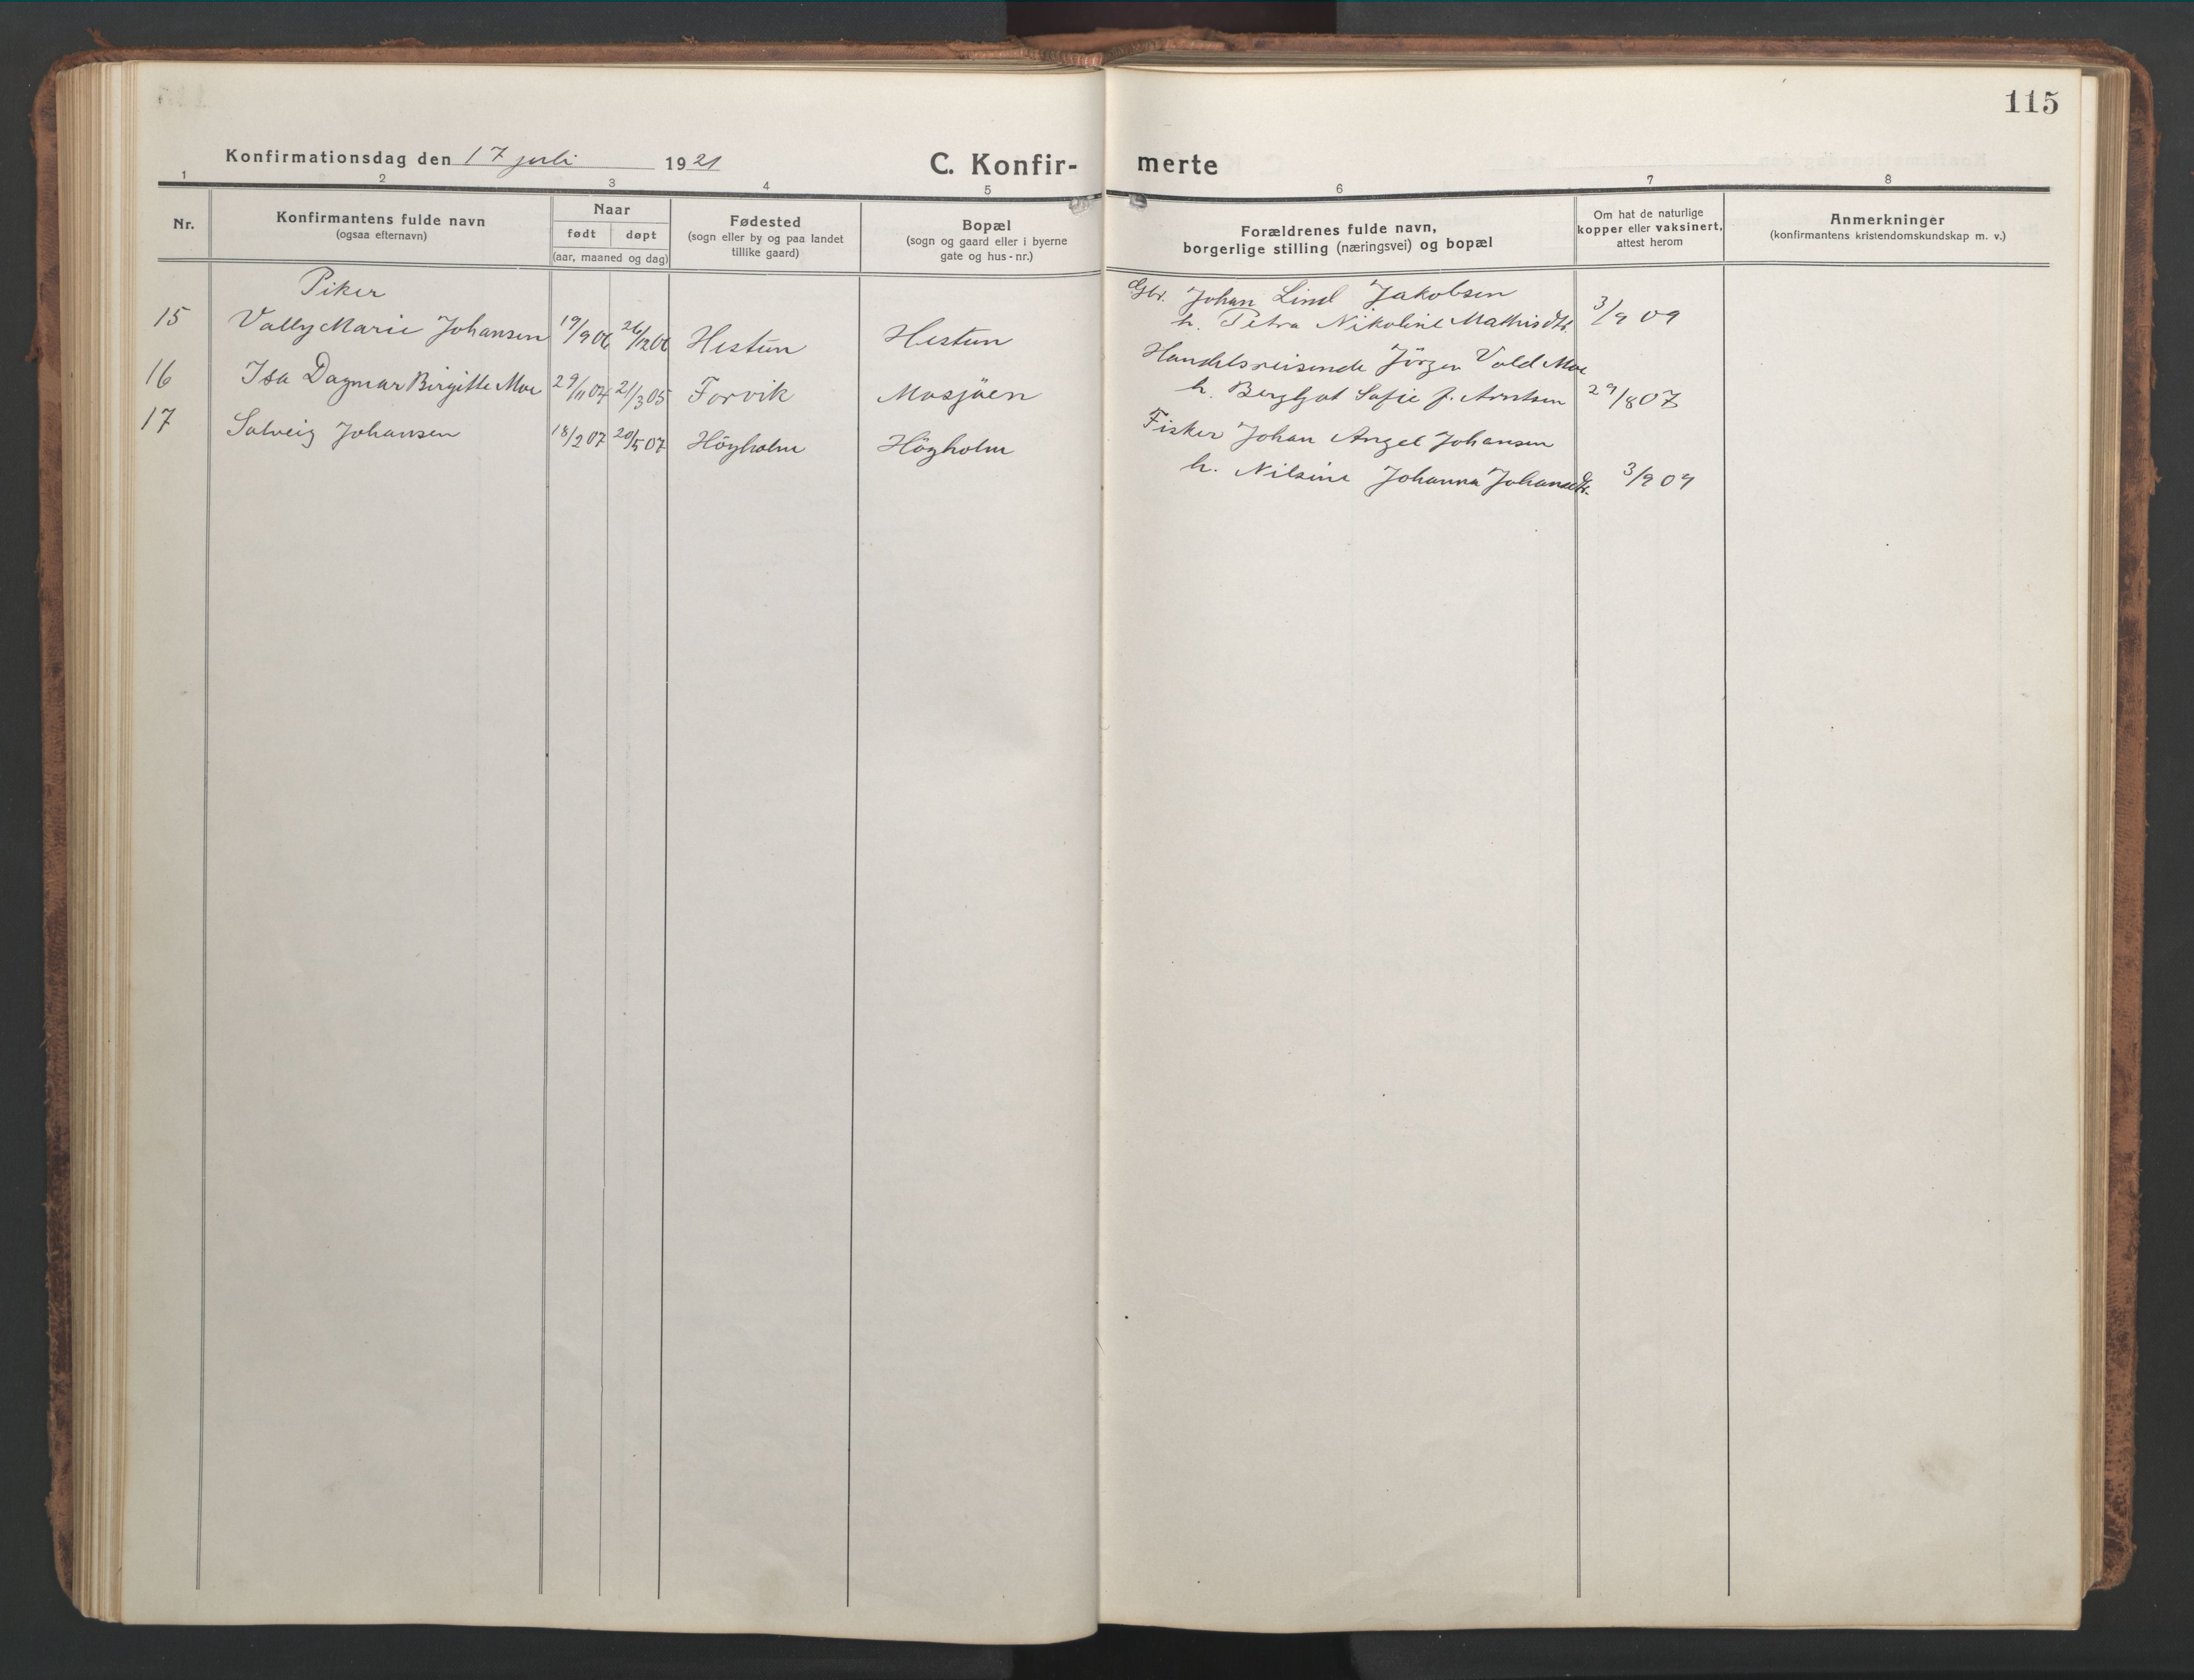 115
Konfirmationsdag den 17 juli 1921
C. Konfir-
merte
1 2 3 4 5 6 7 8
Nr.
Konfirmantens fulde navn
(ogsaa efternavn)
Naar
født døpt
(aar, maaned og dag)
Fødested
(sogn eller by og paa landet
tillike gaard)
Bopæl
(sogn og gaard eller i byerne
gate og hus-nr.)
Forældrenes fulde navn,
borgerlige stilling (næringsvei) og bopæl
Om hat de naturlige
kopper eller vaksinert,
attest herom
Anmerkninger
(konfirmantens kristendomskundskap m. v.)
Piker
15 Vally Marie Johansen 19/9 06 26/12 06 Hestun Hestun
Gbr. Johan Lind Jakobsen
h. Petra Nikoline Mathisdtr. 3/9 09
16 Isa Dagmar Birgitte Moe 29/11 04 21/3 05 Forvik Mosjöen
Handelsreisende Jörgen Vold Moe
h. Bergljot Sofie f. Arntsen 29/8 07
17 Solveig Johansen 18/2 07 20/5 07 Högholm Högholm
Fisker Johan Angel Johansen
h. Nilsine Johanna Johansdtr. 3/9 09